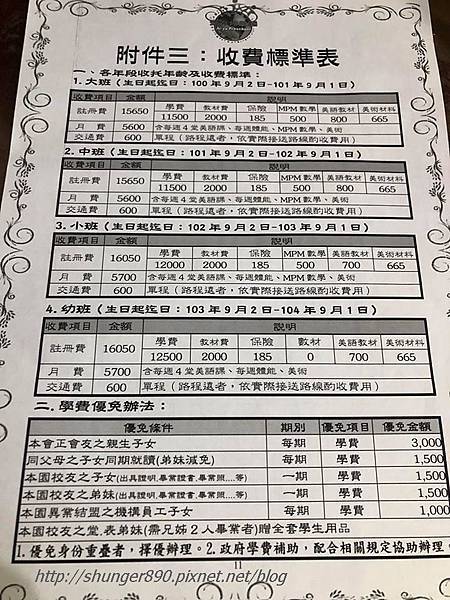 附件三：收費標準表
一、各年段收托年齡及收費標準：
1. 大班（生日起迄日：100 年 9 月 2 日-101 年 9 月 1 日）
收費項目 金額 說明
註冊費 15650 學費 教材費 保險 MPM 數學 美語教材 美術材料
11500 2000 185 500 800 665
月 費 5600 含每週 4 堂美語課、每週體能、MPM 數學、美術
交通費 600 單程（路程遠者，依實際接送路線酌收費用）
2. 中班（生日起迄日：101 年 9 月 2 日-102 年 9 月 1 日）
收費項目 金額 說明
註冊費 15650 學費 教材費 保險 MPM 數學 美語教材 美術材料
11500 2000 185 500 800 665
月 費 5600 含每週 4 堂美語課、每週體能、MPM 數學、美術
交通費 600 單程（路程遠者，依實際接送路線酌收費用）
3. 小班（生日起迄日：102 年 9 月 2 日-103 年 9 月 1 日）
收費項目 金額 說明
註冊費 16050 學費 教材費 保險 MPM 數學 美語教材 美術材料
12000 2000 185 500 700 665
月 費 5700 含每週 4 堂美語課、每週體能、MPM 數學、美術
交通費 600 單程（路程遠者，依實際接送路線酌收費用）
4. 幼班（生日起迄日：103 年 9 月 2 日-104 年 9 月 1 日）
收費項目 金額 說明
註冊費 16050 學費 教材費 保險 數材 美語教材 美術材料
12500 2000 185 0 700 665
月 費 5700 含每週 4 堂美語課、每週體能、MPM 數學、美術
交通費 600 單程（路程遠者，依實際接送路線酌收費用）
二. 學費優免辦法：
優免條件 期別 優免項目 優免金額
本會正會友之親生子女 每期 學費 3,000
同父母之子女同期就讀(弟妹減免) 每期 學費 1,500
本園校友之子女(出具證明.畢業證書.畢業照....等) 一期 學費 1,500
本園校友之弟妹(出具證明.畢業證書.畢業照....等) 一期 學費 1,500
本園異業結盟之機構員工子女 每期 學費 1,000
本園校友之堂.表弟妹(需兄姊 2 人畢業者)贈全套學生用品
1. 優免身份重疊者，擇優辦理。2. 政府學費補助，配合相關規定協助辦理。
11
http://shunger890.pixnet.net/blog